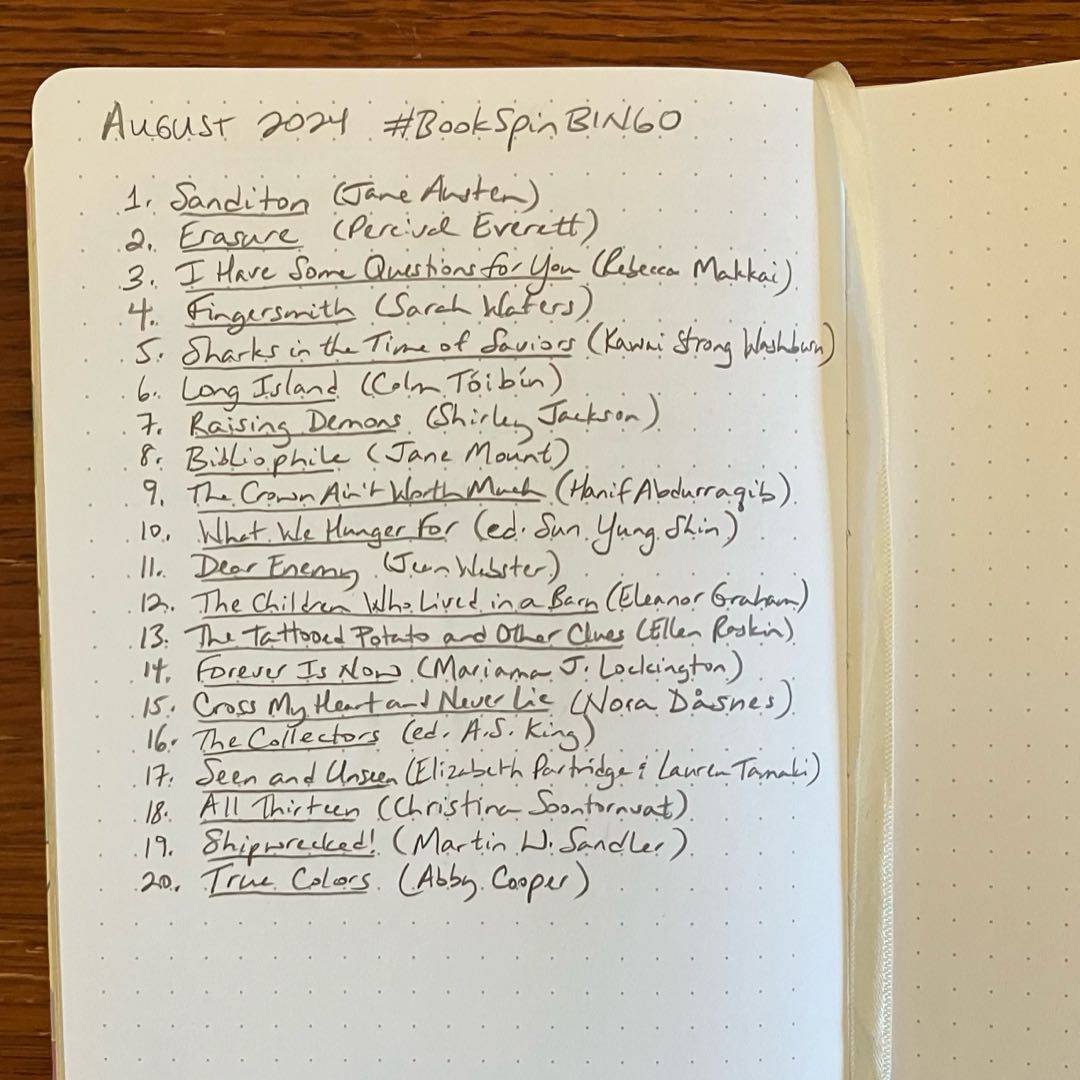 August 2024 #BookSpinBINGO
1. Sanditon (Jane Austen)
2. Erasure (Percival Everett)
3. I Have Some Questions for You (Rebecca Makkai)
4. Fingersmith (Sarah Waters)
5. Sharks in the Time of Saviors (Kawai Strong Washburn)
6. Long Island (Colm Tóibín)
7. Raising Demons (Shirley Jackson)
8. Bibliophile (Jane Mount)
9. The Crown Ain't Worth Much (Hanif Abdurraqib)
10. What We Hunger For (ed. Sun Yung Shin)
11. Dear Enemy (Jean Webster)
12. The Children Who Lived in a Barn (Eleanor Graham)
13. The Tattooed Potato and Other Clues (Ellen Raskin)
14. Forever Is Now (Mariama J. Lockington)
15. Cross My Heart and Never Lie (Nora Dåsnes)
16. The Collectors (ed. A.S. King)
17. Seen and Unseen (Elizabeth Partridge & Lauren Tamaki)
18. All Thirteen (Christina Soontornvat)
19. Shipwrecked! (Martin W. Sandler)
20. True Colors (Abby Cooper)